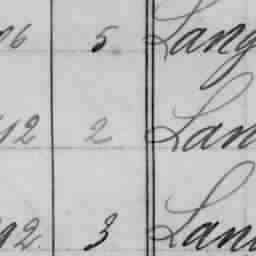 06 5 Lang
12 2 Lan
92 3 Lan